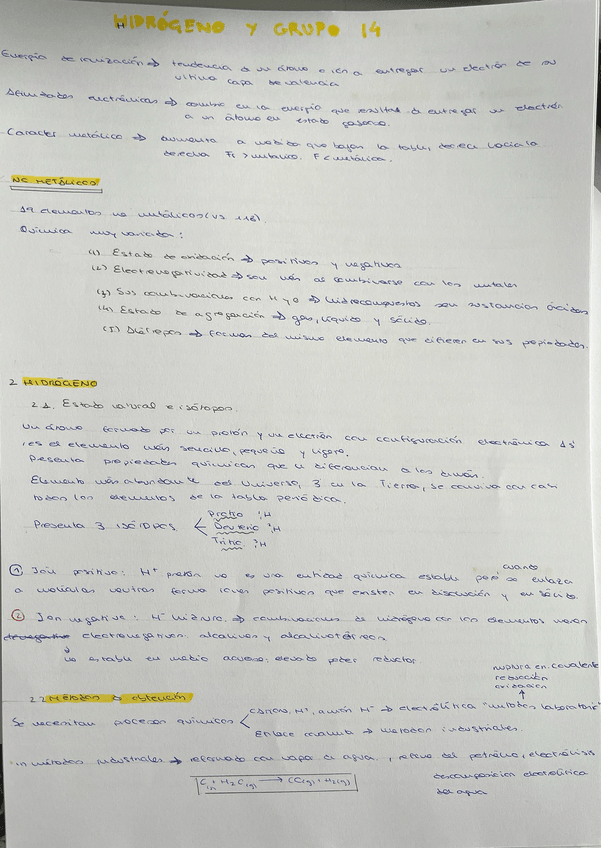 HIDRÓGENO Y GRUPO 14
Energía de ionización → tendencia de un átomo o ión a entregar un electrón de su
última capa de valencia
electrónicas → en la energía que resulta de entregar un electrón
a un átomo en estado gaseoso.
Carácter metálico → aumenta a medida que bajas la tabla, hacia la
derecha Fr > metálico. F < metálica.
NO METÁLICOS
19 elementos no metálicos (vs 118).
Química muy variada:
(1) Estado de oxidación → positivos y negativos
(2) Electronegatividad → son más al combinarse con los metales
(3) Sus combinaciones con H y O → hidrocompuestos son sustancias ácidas
(4) Estado de agregación → gas, líquido y sólido.
(5) → formas del mismo elemento que difieren en sus propiedades.
2 HIDRÓGENO
2.1. Estado natural e isótopos.
Un átomo formado por un protón y un electrón con configuración electrónica 1s¹
, es el elemento más sencillo, pequeño y ligero.
Presenta propiedades químicas que le diferencian a los demás.
Elemento más abundante del Universo, 3 en la Tierra, se combina con casi
todos los elementos de la tabla periódica.
Protio ¹H
Presenta 3 ISÓTOPOS < Deuterio ²H
Tritio ³H
① Ión positivo: H⁺ protón no es una entidad química estable pero cuando se enlaza
a moléculas neutras forma iones positivos que existen en disolución y en sólido.
② Ion negativo: H⁻ hidruro → combinaciones de hidrógeno con los elementos menos
electronegativos: alcalinos y alcalinotérreos
↓
no estable en medio acuoso: elevado poder reductor
ruptura en. covalente
reducción
oxidación
↑
2.2 Métodos de obtención
Se necesitan procesos químicos < catión, H⁺, anión H⁻ → electrolítica "métodos laboratorio"
Enlace covalente → métodos industriales.
métodos industriales → reformado con vapor de agua, del petróleo, electrólisis
descomposición electrolítica
del agua
C + H₂O(g) → CO(g) + H₂(g)